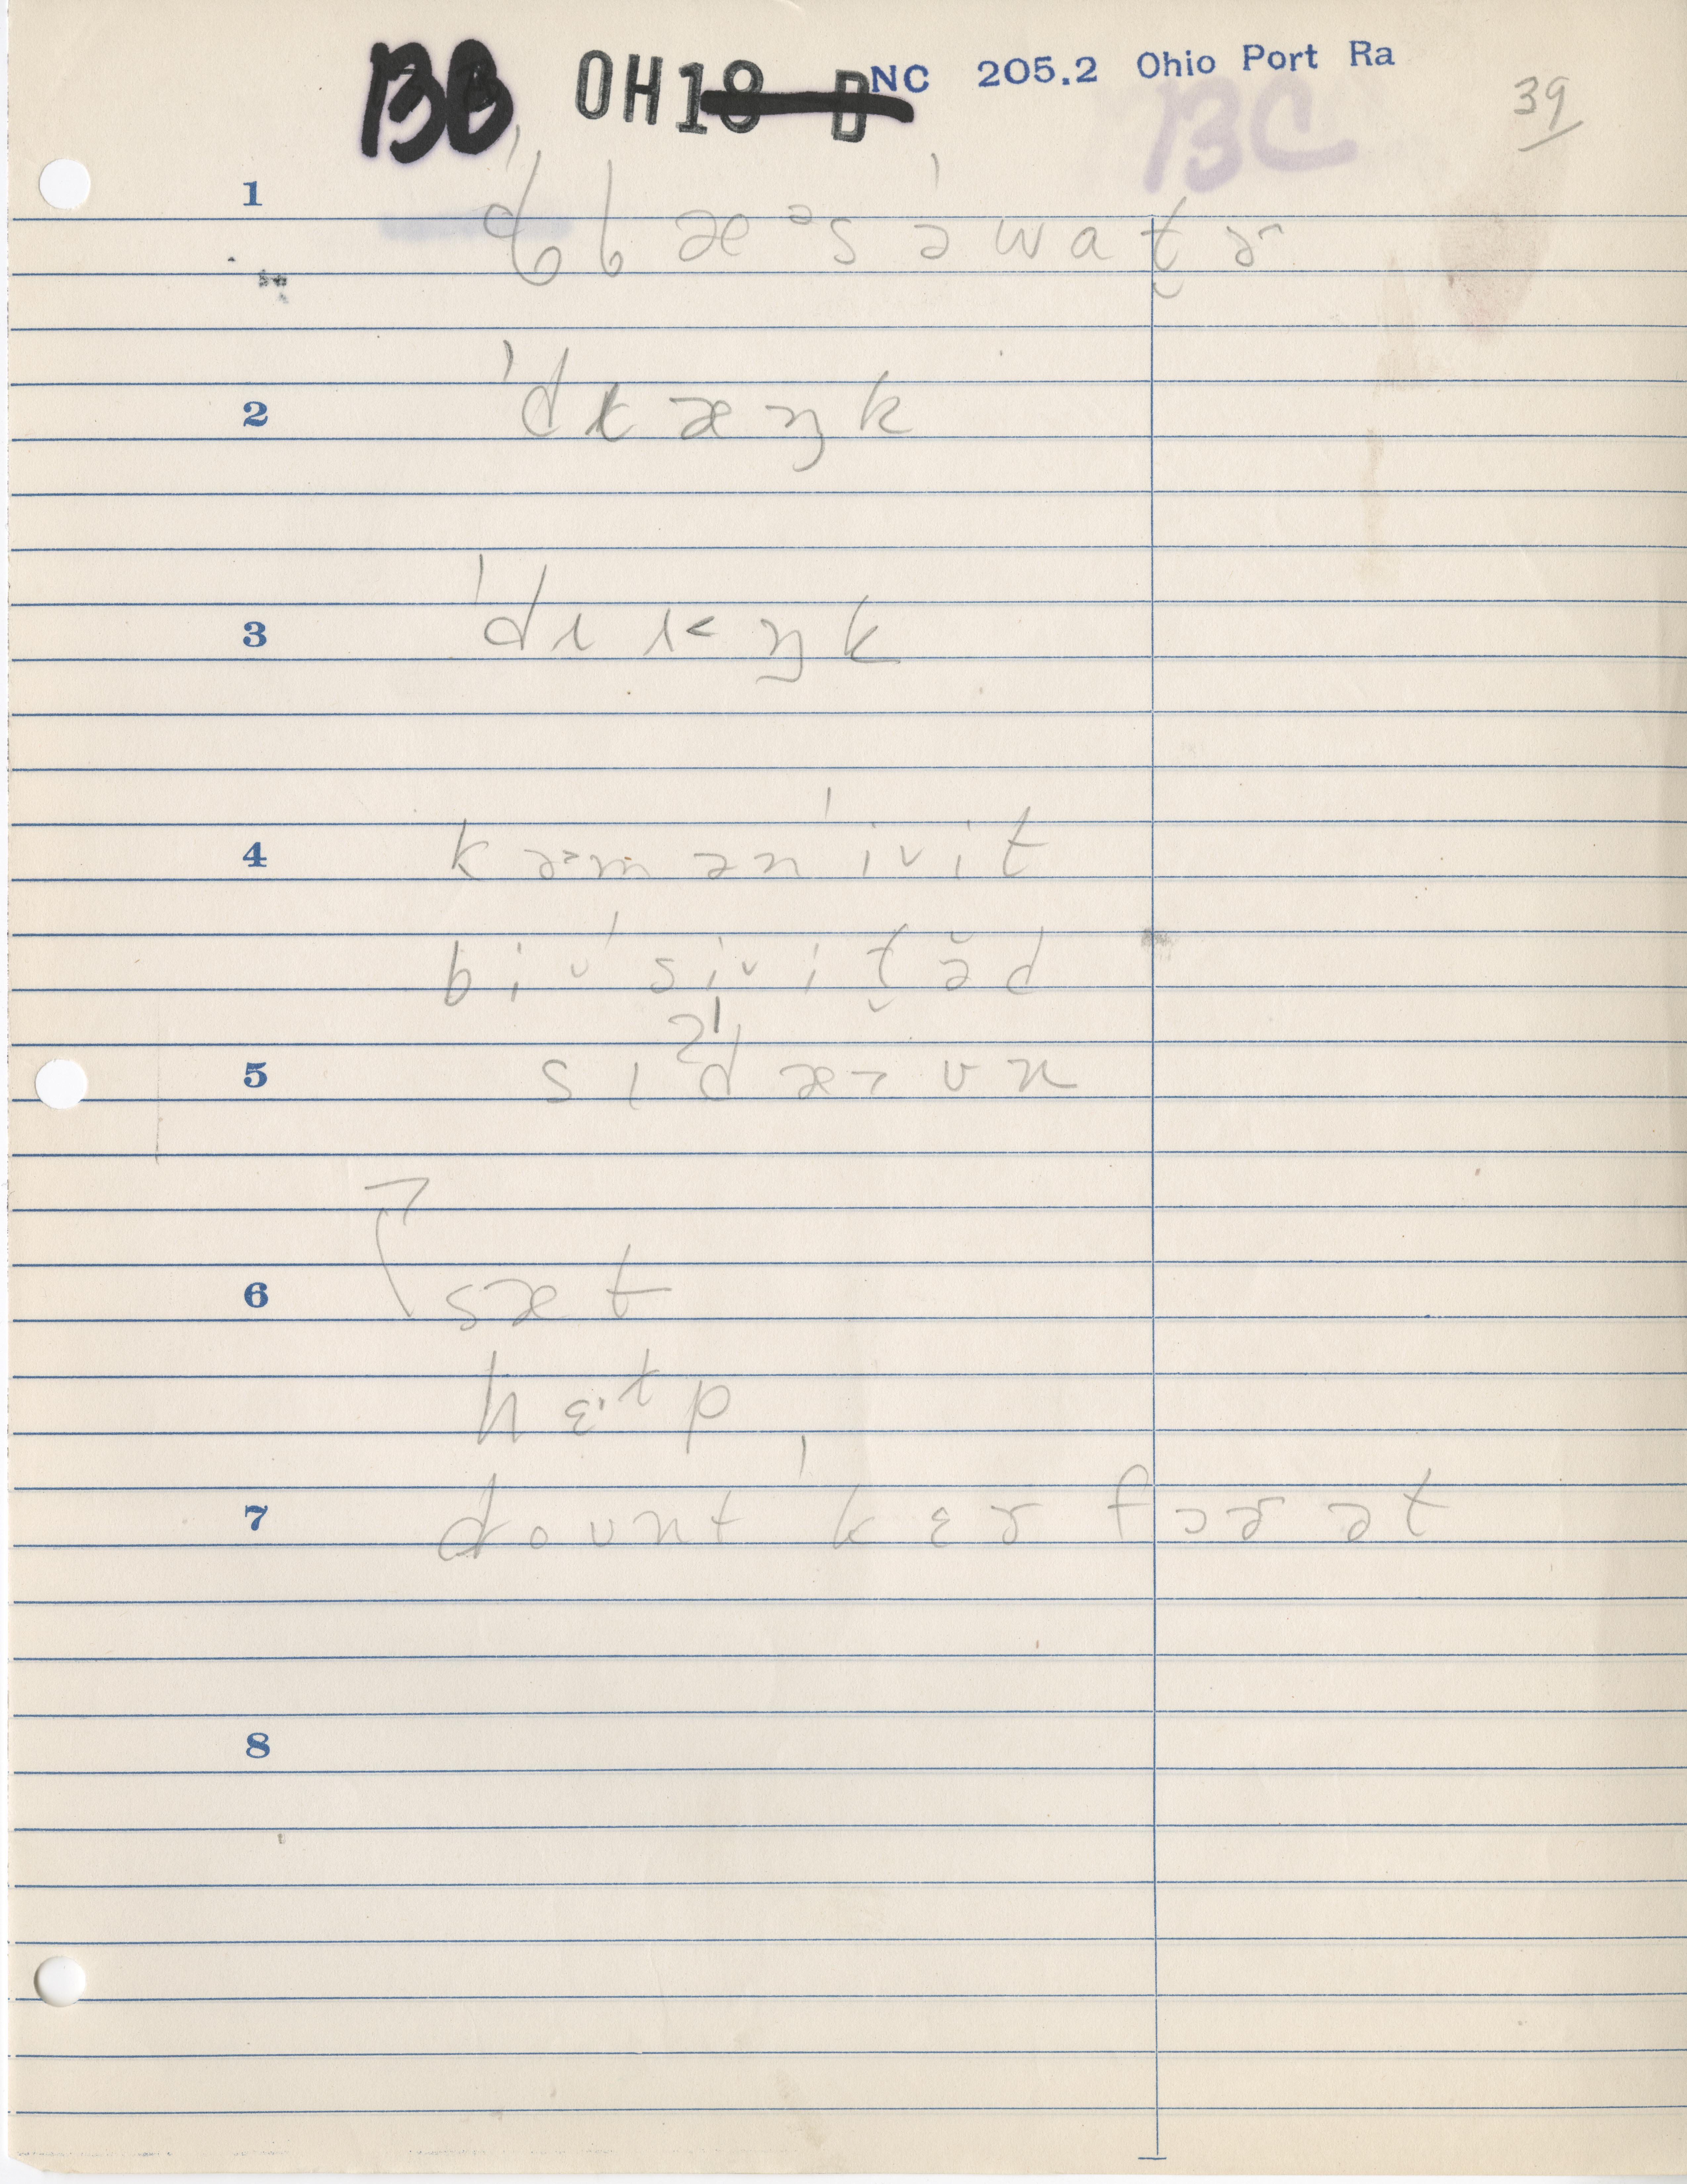 BB OH18 D NC 205.2 Ohio Port Ra
BC
39
1 ɡlæᵊs ə wɑt̬ɚ
2 ˈdɹæŋk
3 ˈdɹɪ˂ŋk
4 kəˑmənˈiᵛit
biᵛˈsiᵛit̬ə̆d
5 sɪˈdæ˃ʊn
6 sæt
hɛˑɫp
7 doʊntˈkɛɚ fɔɚ ət
8